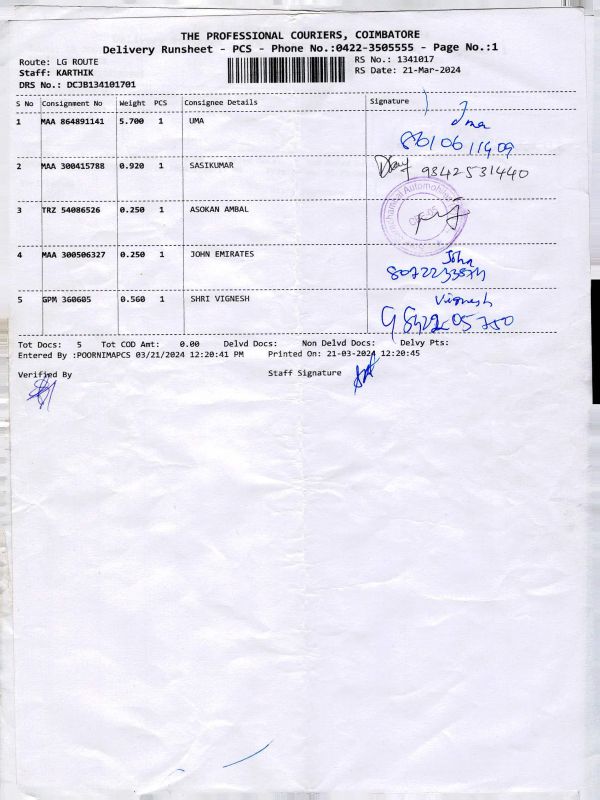 THE PROFESSIONAL COURIERS, COIMBATORE
Delivery Runsheet - PCS - Phone No.:0422-3505555 - Page No.:1
Route: LG ROUTE
RS No.: 1341017
Staff: KARTHIK
RS Date: 21-Mar-2024
DRS No.: DCJB134101701
S No Consignment No Weight PCS Consignee Details Signature
1 MAA 864891141 5.700 1 UMA
2 MAA 300415788 0.920 1 SASIKUMAR 9842531440
3 TRZ 54086526 0.250 1 ASOKAN AMBAL
4 MAA 300506327 0.250 1 JOHN EMIRATES John
5 GPM 360605 0.560 1 SHRI VIGNESH Vignesh
Tot Docs: 5 Tot COD Amt: 0.00 Delvd Docs: Non Delvd Docs: Delvy Pts:
Entered By :POORNIMAPCS 03/21/2024 12:20:41 PM Printed On: 21-03-2024 12:20:45
Verified By Staff Signature